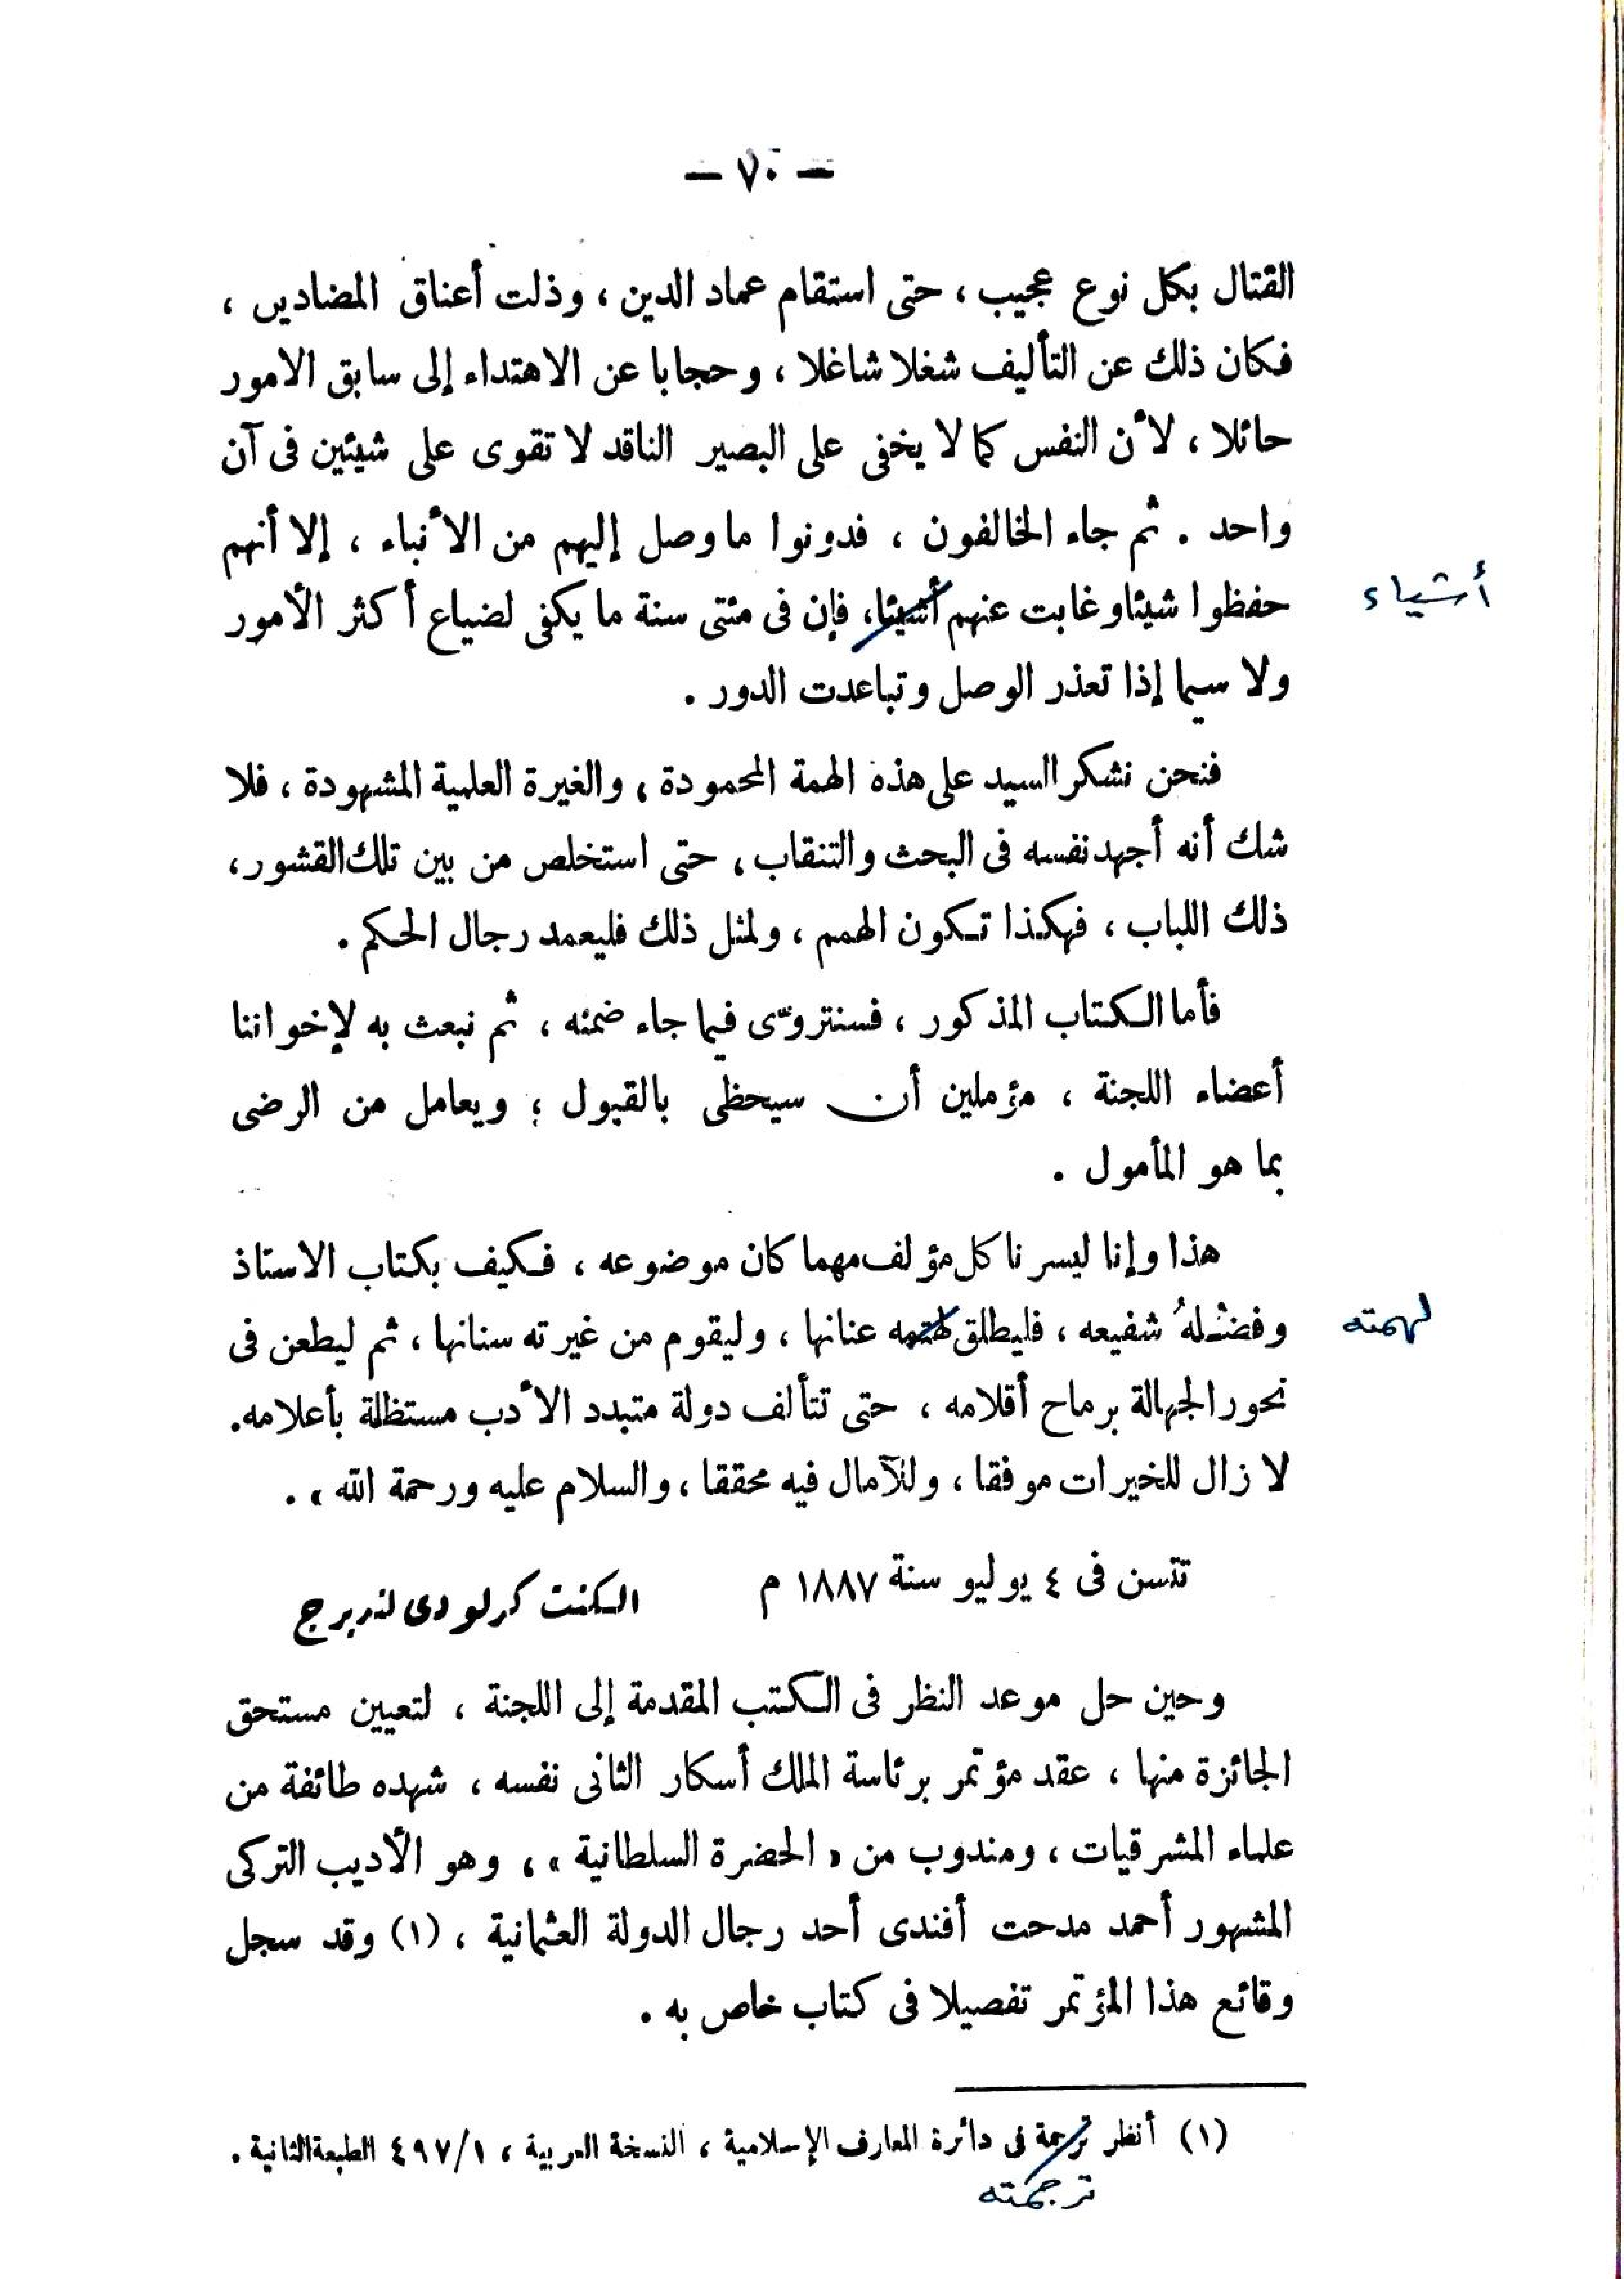 — ٧٠ —
القتال بكل نوع عجيب ، حتى استقام عماد الدين ، وذلت أعناق المضادين ،
فكان ذلك عن التأليف شغلا شاغلا ، وحجابا عن الاهتداء إلى سابق الامور
حائلا ، لأن النفس كما لا يخفى على البصير الناقد لا تقوى على شيئين فى آن
واحد . ثم جاء الخالفون ، فدونوا ما وصل إليهم من الأنباء ، إلا أنهم
حفظوا شيئا وغابت عنهم أشيئا، فإن فى مئتى سنة ما يكفى لضياع أكثر الأمور
أشياء
ولا سيما إذا تعذر الوصل وتباعدت الدور .
فنحن نشكر السيد على هذه الهمة المحمودة ، والغيرة العلمية المشهودة ، فلا
شك أنه أجهد نفسه فى البحث والتنقاب ، حتى استخلص من بين تلك القشور ،
ذلك اللباب ، فهكذا تكون الهمم ، ولمثل ذلك فليعمد رجال الحكم .
فأما الكتاب المذكور ، فسنتروّى فيما جاء ضمنه ، ثم نبعث به لإخواننا
أعضاء اللجنة ، مؤملين أن سيحظى بالقبول ؛ ويعامل من الرضى
بما هو المأمول .
هذا وإنا ليسرنا كل مؤلف مهما كان موضوعه ، فكيف بكتاب الاستاذ
وفضْلهُ شفيعه ، فليطلق لهتمه عنانها ، وليقوم من غيرته سنانها ، ثم ليطعن فى
لهمته
نحور الجهالة برماح أقلامه ، حتى تتألف دولة متبدد الأدب مستظلة بأعلامه.
لا زال للخيرات موفقا ، وللآمال فيه محققا ، والسلام عليه ورحمة الله » .
تتسن فى ٤ يوليو سنة ١٨٨٧ م
الكنت كرلو دى لندبرج
وحين حل موعد النظر فى الكتب المقدمة إلى اللجنة ، لتعيين مستحق
الجائزة منها ، عقد مؤتمر برئاسة الملك أسكار الثانى نفسه ، شهده طائفة من
علماء المشرقيات ، ومندوب من « الحضرة السلطانية » ، وهو الأديب التركى
المشهور أحمد مدحت أفندى أحد رجال الدولة العثمانية ، (١) وقد سجل
وقائع هذا المؤتمر تفصيلا فى كتاب خاص به .
(١) أنظر ترجمة فى دائرة المعارف الإسلامية ، النسخة العربية ، ٤٩٧/١ الطبعة الثانية .
ترجمته